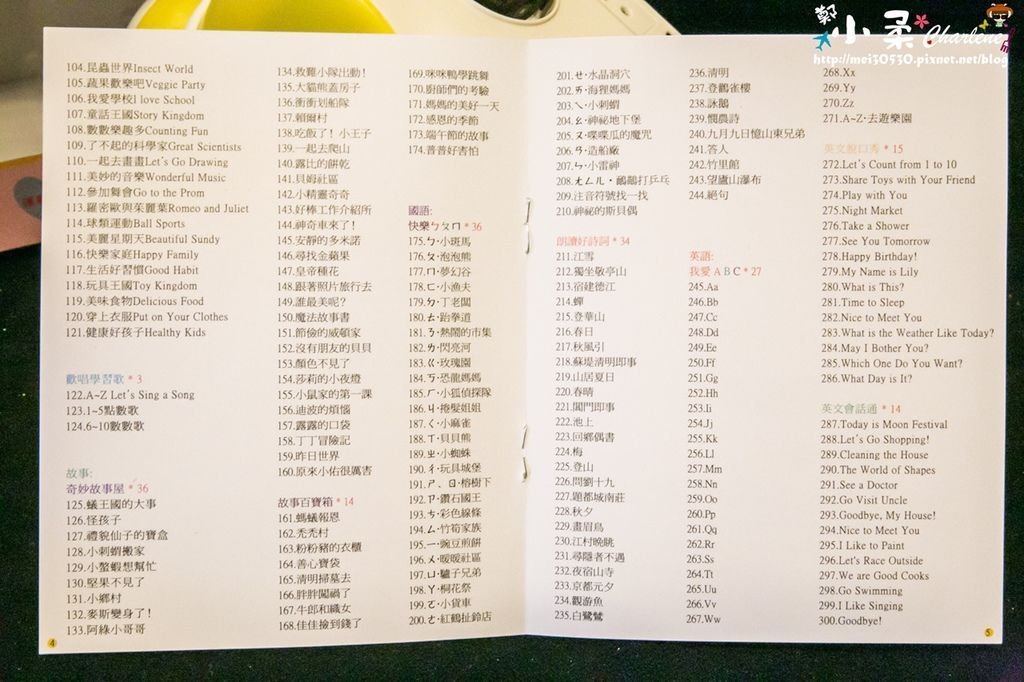 鄭小柔 Charlene
http://mei30530.pixnet.net/blog
104.昆蟲世界Insect World
105.蔬果歡樂吧Veggie Party
106.我愛學校I love School
107.童話王國Story Kingdom
108.數數樂趣多Counting Fun
109.了不起的科學家Great Scientists
110.一起去畫畫Let's Go Drawing
111.美妙的音樂Wonderful Music
112.參加舞會Go to the Prom
113.羅密歐與茱麗葉Romeo and Juliet
114.球類運動Ball Sports
115.美麗星期天Beautiful Sundy
116.快樂家庭Happy Family
117.生活好習慣Good Habit
118.玩具王國Toy Kingdom
119.美味食物Delicious Food
120.穿上衣服Put on Your Clothes
121.健康好孩子Healthy Kids
歡唱學習歌 * 3
122.A~Z Let's Sing a Song
123.1~5點數歌
124.6~10數數歌
故事:
奇妙故事屋 * 36
125.蟻王國的大事
126.怪孩子
127.禮貌仙子的寶盒
128.小刺蝟搬家
129.小螯蝦想幫忙
130.堅果不見了
131.小鄉村
132.麥斯變身了!
133.阿綠小哥哥
134.救難小隊出動!
135.大貓熊蓋房子
136.衝衝划船隊
137.賴爾村
138.吃飯了! 小王子
139.一起去爬山
140.露比的餅乾
141.貝姆社區
142.小精靈奇奇
143.好棒工作介紹所
144.神奇車來了!
145.安靜的多米諾
146.尋找金蘋果
147.皇帝種花
148.跟著照片旅行去
149.誰最美呢?
150.魔法故事書
151.節儉的威頓家
152.沒有朋友的貝貝
153.顏色不見了
154.莎莉的小夜燈
155.小鼠家的第一課
156.迪波的煩惱
157.露露的口袋
158.丁丁冒險記
159.昨日世界
160.原來小佑很厲害
故事百寶箱 * 14
161.螞蟻報恩
162.禿禿村
163.粉粉豬的衣櫃
164.善心寶袋
165.清明掃墓去
166.胖胖闖禍了
167.牛郎和織女
168.佳佳撿到錢了
169.咪咪鴨學跳舞
170.廚師們的考驗
171.媽媽的美好一天
172.感恩的季節
173.端午節的故事
174.普普好害怕
國語:
快樂ㄅㄆㄇ * 36
175.ㄅ‧小斑馬
176.ㄆ‧泡泡熊
177.ㄇ‧夢幻谷
178.ㄈ‧小漁夫
179.ㄉ‧丁老闆
180.ㄊ‧跆拳道
181.ㄋ‧熱鬧的市集
182.ㄌ‧閃亮河
183.ㄍ‧玫瑰園
184.ㄎ‧恐龍媽媽
185.ㄏ‧小狐偵探隊
186.ㄐ‧捲髮姐姐
187.ㄑ‧小麻雀
188.ㄒ‧貝貝熊
189.ㄓ‧小蜘蛛
190.ㄔ‧玩具城堡
191.ㄕ、ㄖ‧榕樹下
192.ㄗ‧鑽石國王
193.ㄘ‧彩色線條
194.ㄙ‧竹筍家族
195.ㄧ‧豌豆煎餅
196.ㄨ‧暖暖社區
197.ㄩ‧驢子兄弟
198.ㄚ‧桐花祭
199.ㄛ‧小貨車
200.ㄜ‧紅鶴扯鈴店
4
201.ㄝ‧水晶洞穴
202.ㄞ‧海狸媽媽
203.ㄟ‧小刺蝟
204.ㄠ‧神祕地下堡
205.ㄡ‧喋喋瓜的魔咒
206.ㄢ‧造船廠
207.ㄣ‧小雷神
208.ㄤㄥㄦ‧鸸鹋打乒乓
209.注音符號找一找
210.神祕的斯貝偶
朗讀好詩詞 * 34
211.江雪
212.獨坐敬亭山
213.宿建德江
214.蟬
215.登華山
216.春日
217.秋風引
218.蘇堤清明即事
219.山居夏日
220.春晴
221.閶門即事
222.池上
223.回鄉偶書
224.梅
225.登山
226.問劉十九
227.題都城南莊
228.秋夕
229.畫眉鳥
230.江村晚眺
231.尋隱者不遇
232.夜宿山寺
233.京都元夕
234.觀游魚
235.白鷺鷥
236.清明
237.登鸛雀樓
238.詠鵝
239.憫農詩
240.九月九日憶山東兄弟
241.答人
242.竹里館
243.望廬山瀑布
244.絕句
英語:
我愛 A B C * 27
245.Aa
246.Bb
247.Cc
248.Dd
249.Ee
250.Ff
251.Gg
252.Hh
253.Ii
254.Jj
255.Kk
256.Ll
257.Mm
258.Nn
259.Oo
260.Pp
261.Qq
262.Rr
263.Ss
264.Tt
265.Uu
266.Vv
267.Ww
268.Xx
269.Yy
270.Zz
271.A~Z‧去遊樂園
英文脫口秀 * 15
272.Let's Count from 1 to 10
273.Share Toys with Your Friend
274.Play with You
275.Night Market
276.Take a Shower
277.See You Tomorrow
278.Happy Birthday!
279.My Name is Lily
280.What is This?
281.Time to Sleep
282.Nice to Meet You
283.What is the Weather Like Today?
284.May I Bother You?
285.Which One Do You Want?
286.What Day is It?
英文會話通 * 14
287.Today is Moon Festival
288.Let's Go Shopping!
289.Cleaning the House
290.The World of Shapes
291.See a Doctor
292.Go Visit Uncle
293.Goodbye, My House!
294.Nice to Meet You
295.I Like to Paint
296.Let's Race Outside
297.We are Good Cooks
298.Go Swimming
299.I Like Singing
300.Goodbye!
5